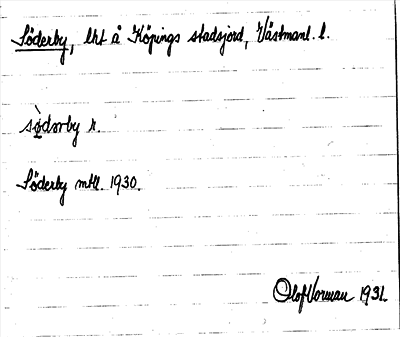 Söderby, lht å Köpings stadsjord, Västmanl. l.
sø̀dərby r.
Söderby mtl. 1930.
Olof Vorman 1931.